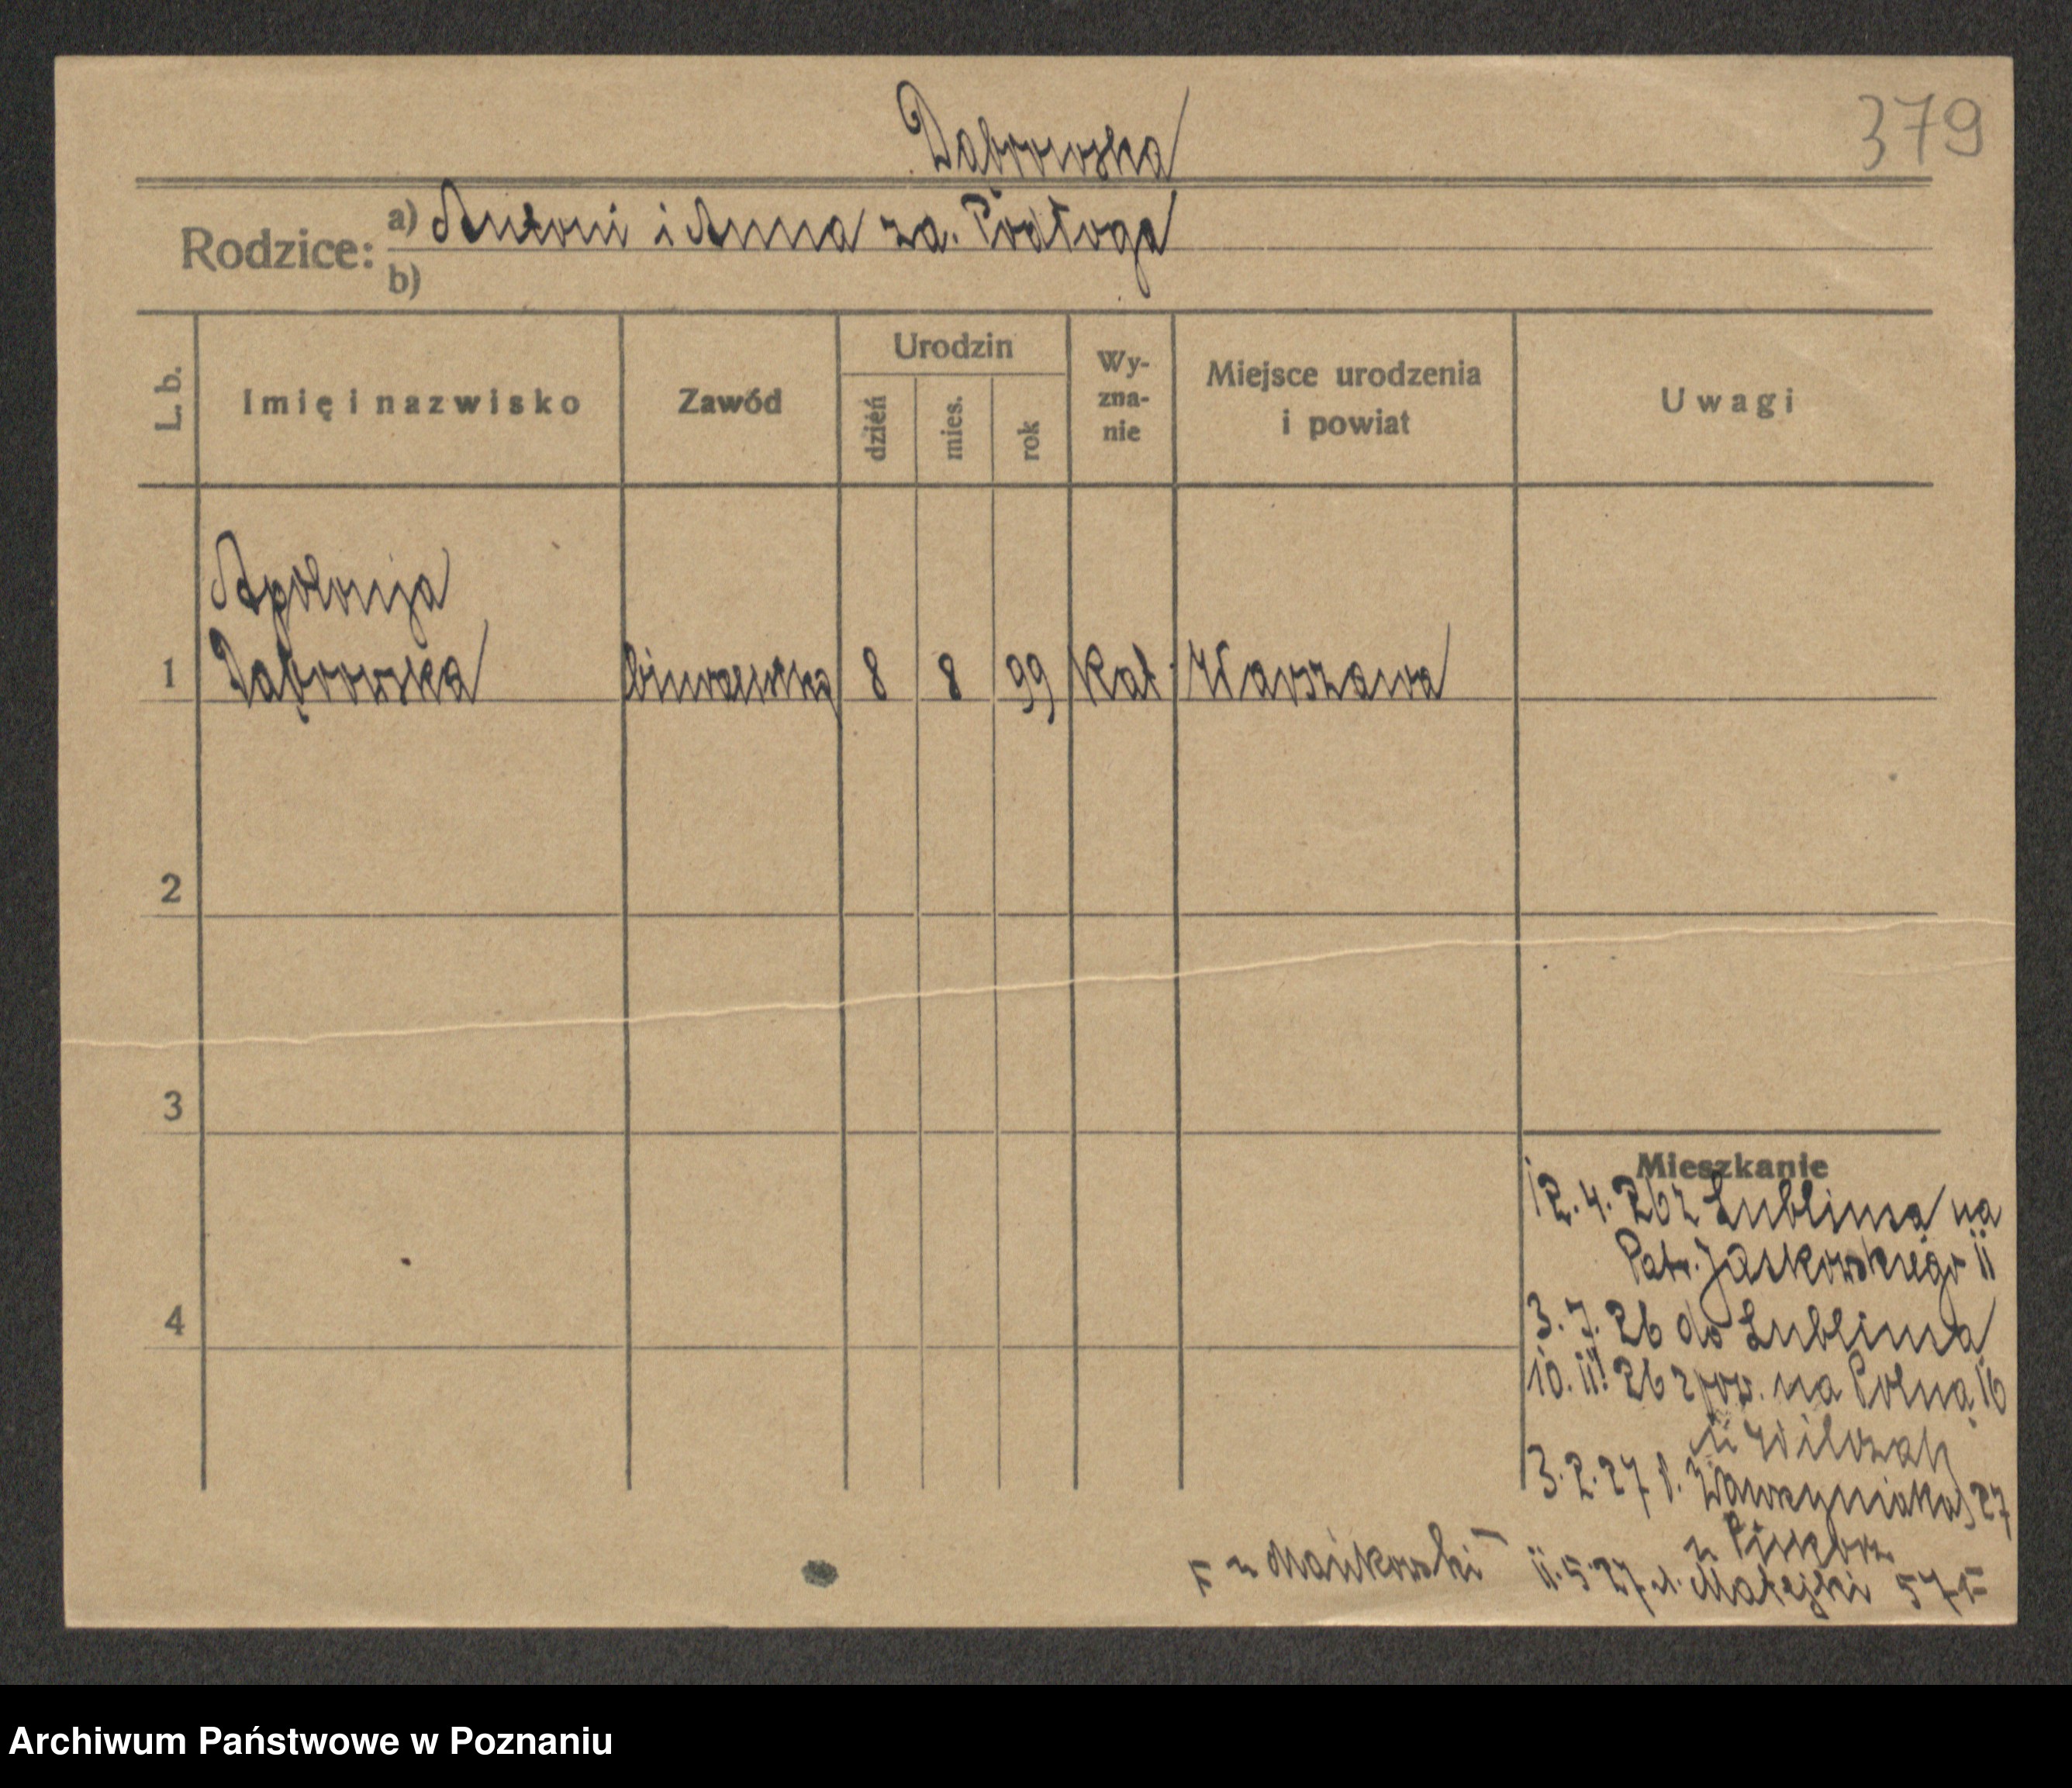 Dąbrowska
379
Rodzice: a) Antoni i Anna za. Podloga
b)
L. b.
Imię i nazwisko
Zawód
Urodzin
dzień
mies.
rok
Wy-
zna-
nie
Miejsce urodzenia
i powiat
Uwagi
Apolonja
1 Dąbrowska biuralistka 8 8 99 kat. Warszawa
2
3
Mieszkanie
12.4.26 z Lublina na
Patr. Jackowskiego 11
4
3.7.26 do Lublina
10.11.26 zpow. na Polną 16
u Wilczak
3.2.27 Wawrzyniaka 27
u
u Mańkowski 11.5.27 Matejki 57
Archiwum Państwowe w Poznaniu